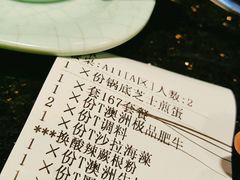 :A11[A区] 人数:2
1 ×份锅底芝士煎蛋
1 ×套167套餐
1 ×份T澳洲极品肥牛
2 ×份T调料
1 ×份T沙拉海藻
***换酸辣蕨根粉
1 ×份T澳洲牛
1